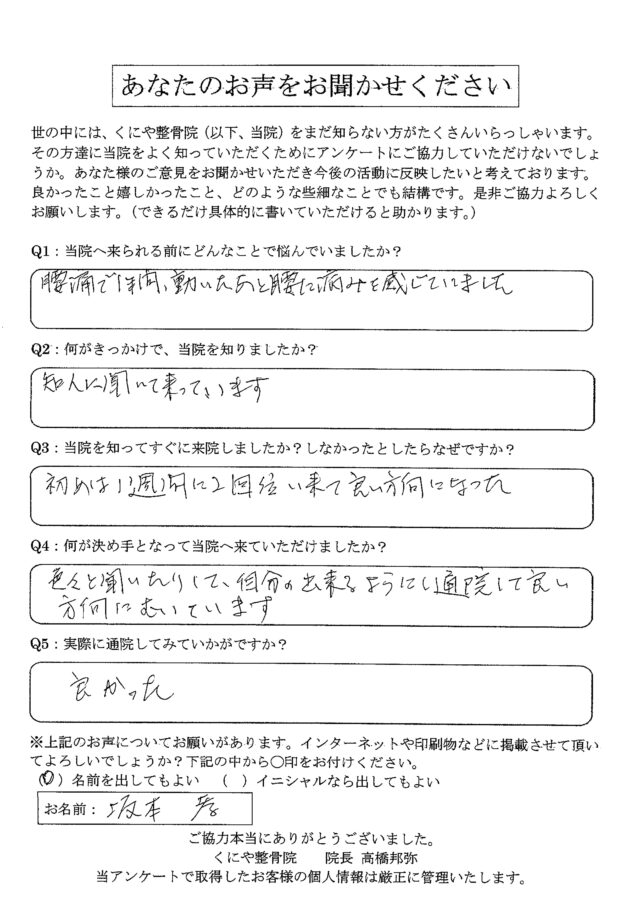 あなたのお声をお聞かせください
世の中には、くにや整骨院（以下、当院）をまだ知らない方がたくさんいらっしゃいます。
その方達に当院をよく知っていただくためにアンケートにご協力していただけないでしょ
うか。あなた様のご意見をお聞かせいただき今後の活動に反映したいと考えております。
良かったこと嬉しかったこと、どのような些細なことでも結構です。是非ご協力よろしく
お願いします。（できるだけ具体的に書いていただけると助かります。）
Q1：当院へ来られる前にどんなことで悩んでいましたか？
腰痛で 動いたあと腰に病みを感じていました
Q2：何がきっかけで、当院を知りましたか？
知人に聞いて来っています
Q3：当院を知ってすぐに来院しましたか？しなかったとしたらなぜですか？
初めは1週間に2回位い来て良い方向になった
Q4：何が決め手となって当院へ来ていただけましたか？
色々と聞いたりして、自分の出来るようにし通院して良い
方向にむいています
Q5：実際に通院してみていかがですか？
良かった
※上記のお声についてお願いがあります。インターネットや印刷物などに掲載させて頂い
てよろしいでしょうか？下記の中から〇印をお付けください。
（〇）名前を出してもよい （ ）イニシャルなら出してもよい
お名前：坂本
ご協力本当にありがとうございました。
くにや整骨院 院長 高橋邦弥
当アンケートで取得したお客様の個人情報は厳正に管理いたします。